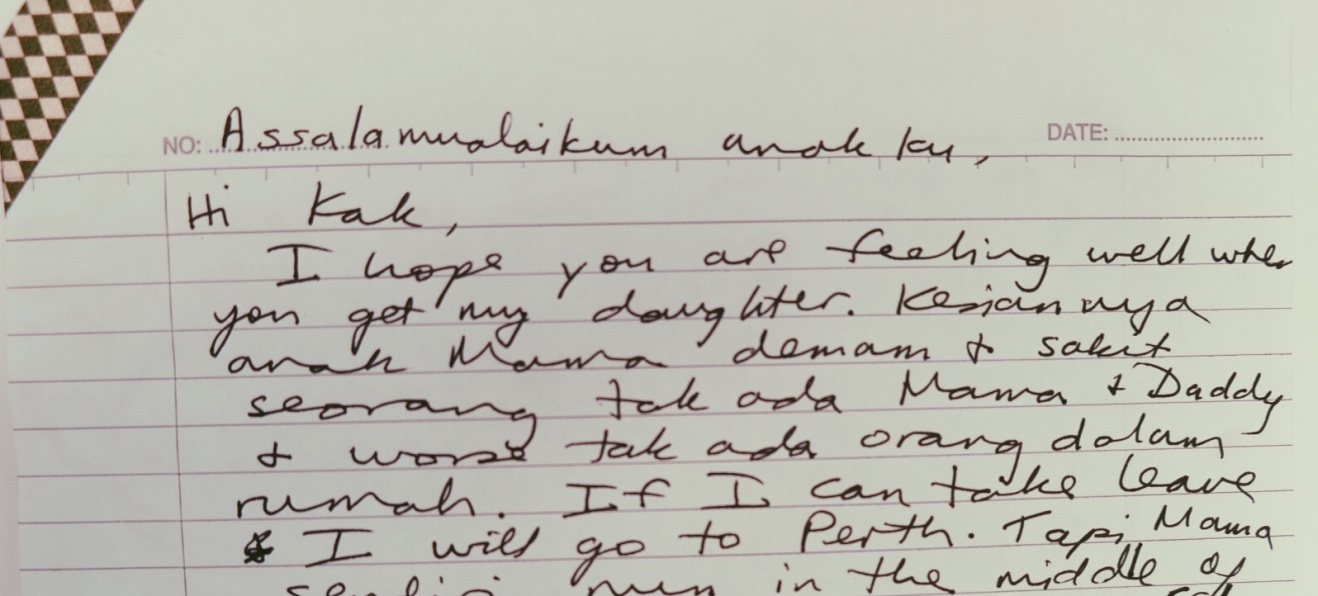 NO: Assalamualaikum anak ku,
DATE:
Hi Kak,
I hope you are feeling well when
you get my daughter. Kesian nya
anak Mama demam & sakit
seorang tak ada Mama & Daddy
& worse tak ada orang dalam
rumah. If I can take leave
I will go to Perth. Tapi Mama
sendiri pun in the middle of